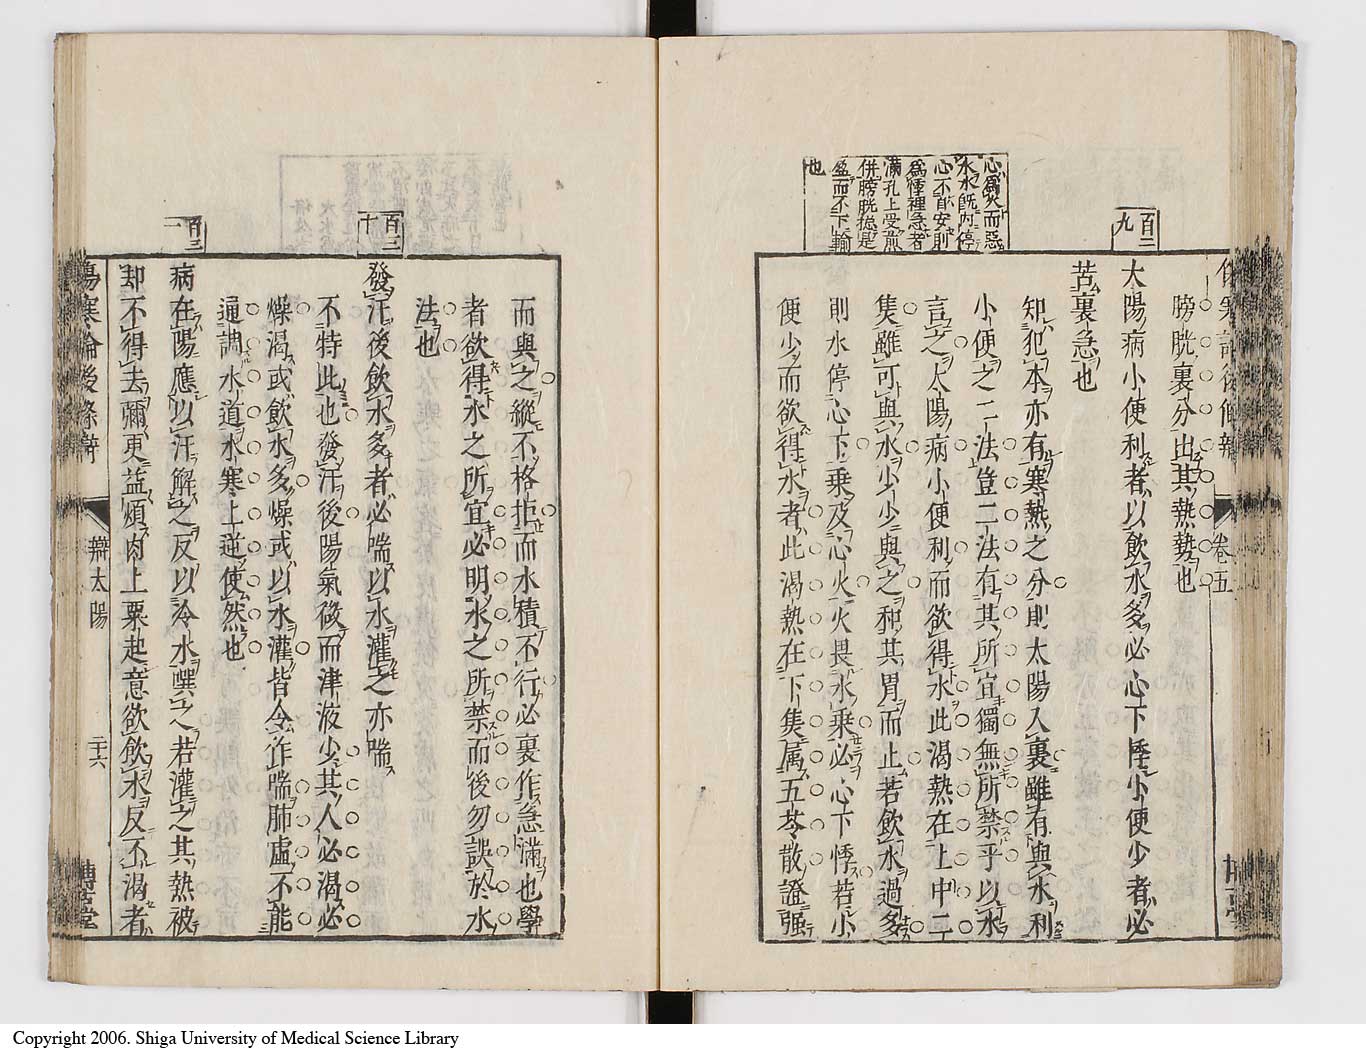 傷寒論後條辨
卷五
膀胱裏分出其熱勢也
百二九
太陽病小便利者以飲水多必心下悸小便少者必
苦裏急也
心為火而惡
水水旣內停
心不自安則
為悸裡急者
滿孔上受煎
併膀胱穏是
盈而不下輸
也
知犯本亦有寒熱之分則太陽入裏雖有與水利
小便之二法豈二法有其所宜獨無所禁乎以水
言之太陽病小便利而欲得水此渴熱在上中二
焦雖可與水少少與之和其胃而止若飲水過多
則水停心下乗及心火火畏水乗必心下悸若小
便少而欲得水者此渴熱在下焦属五苓散證强
而與之縱不格拒而水積不行必裏作急滿也學
者欲得水之所宜必明水之所禁而後勿誤於水
法也
百三十
發汗後飲水多者必喘以水灌之亦喘
不特此也發汗後陽氣微而津液少其人必渴必
燥渴或飲水多燥或以水灌皆令作喘肺虛不能
通調水道水寒上逆使然也
百三一
病在陽應以汗解之反以冷水噀之若灌之其熱被
却不得去彌更益煩肉上粟起意欲飲水反不渴者
傷寒論後條辨
辨太陽
二十六
博古堂
Copyright 2006. Shiga University of Medical Science Library